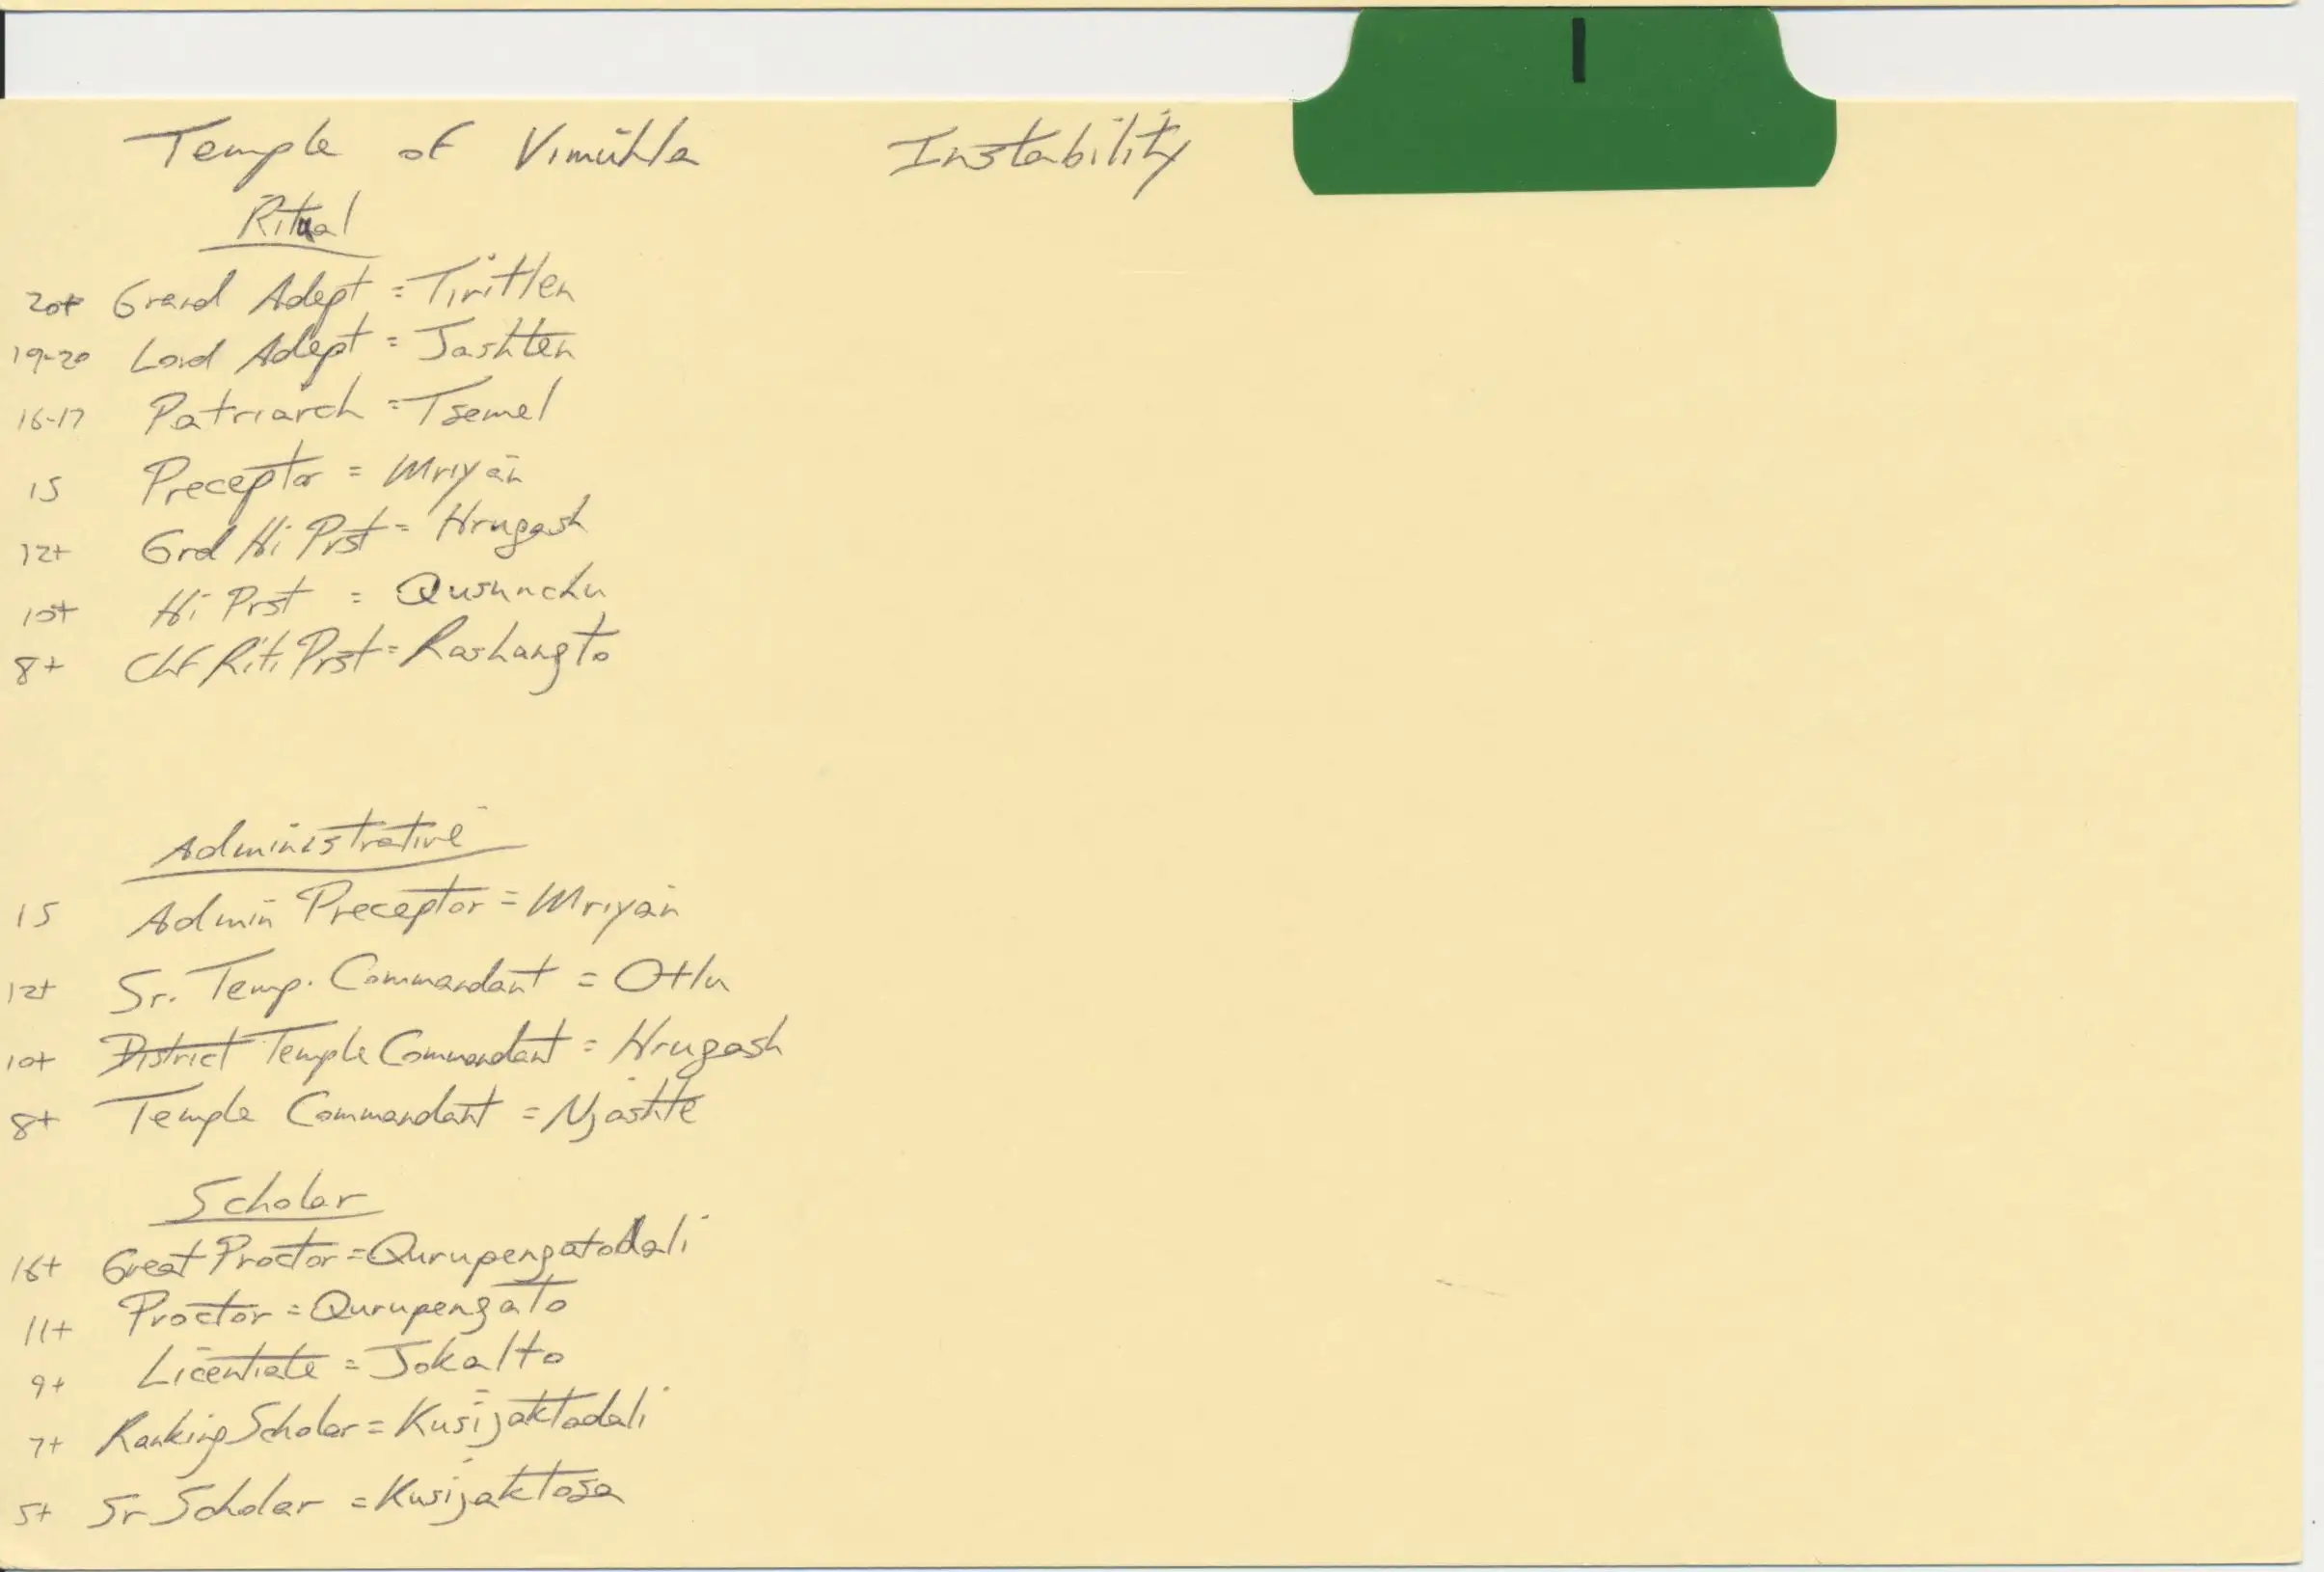 I
Temple of Vimühla Instability
Ritual
20+ Grand Adept = Tiritlen
19-20 Lord Adept = Jashten
16-17 Patriarch = Tsemel
15 Preceptor = Mriyan
12+ Grd Hi Prst = Hrugash
10+ Hi Prst = Qusunchu
8+ Chf Rit. Prst = Rashangto
Administrative
15 Admin Preceptor = Mriyan
12+ Sr. Temp. Commandant = Otlu
10+ District Temple Commandant = Hrugash
8+ Temple Commandant = Njashte
Scholar
16+ Great Proctor = Qurupengatodali
11+ Proctor = Qurupengato
9+ Licentiate = Jokalto
7+ Ranking Scholar = Kusijaktodali
5+ Sr Scholar = Kusijaktosa